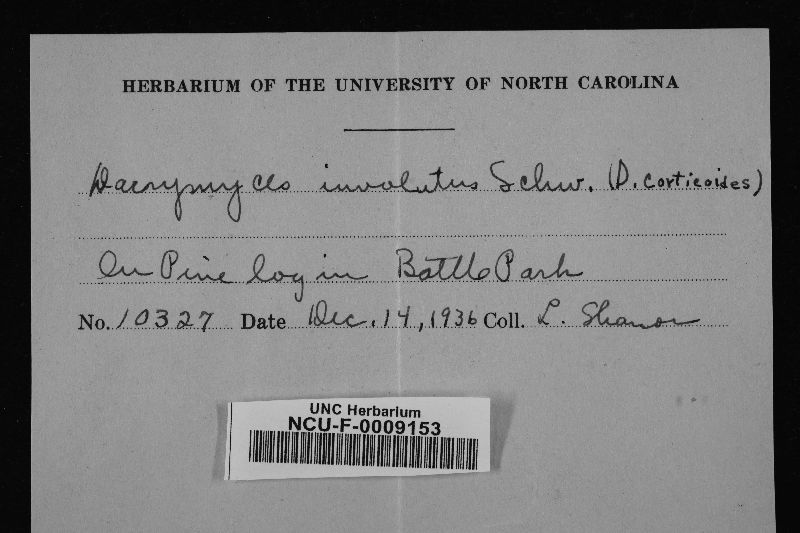 HERBARIUM OF THE UNIVERSITY OF NORTH CAROLINA
Dacrymyces involutus Schw. (D. corticoides)
On Pine log in Battle Park
No. 10327 Date Dec. 14, 1936 Coll. L. Shanor
UNC Herbarium
NCU-F-0009153